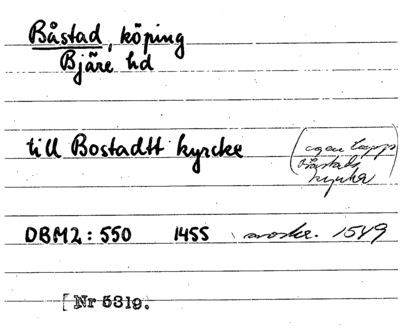 Båstad, köping
Bjäre hd
till Bostadtt kyrcke
(egen
Båstads
kyrka
DBM2: 550 1455 avskr. 1549
[Nr 5319.